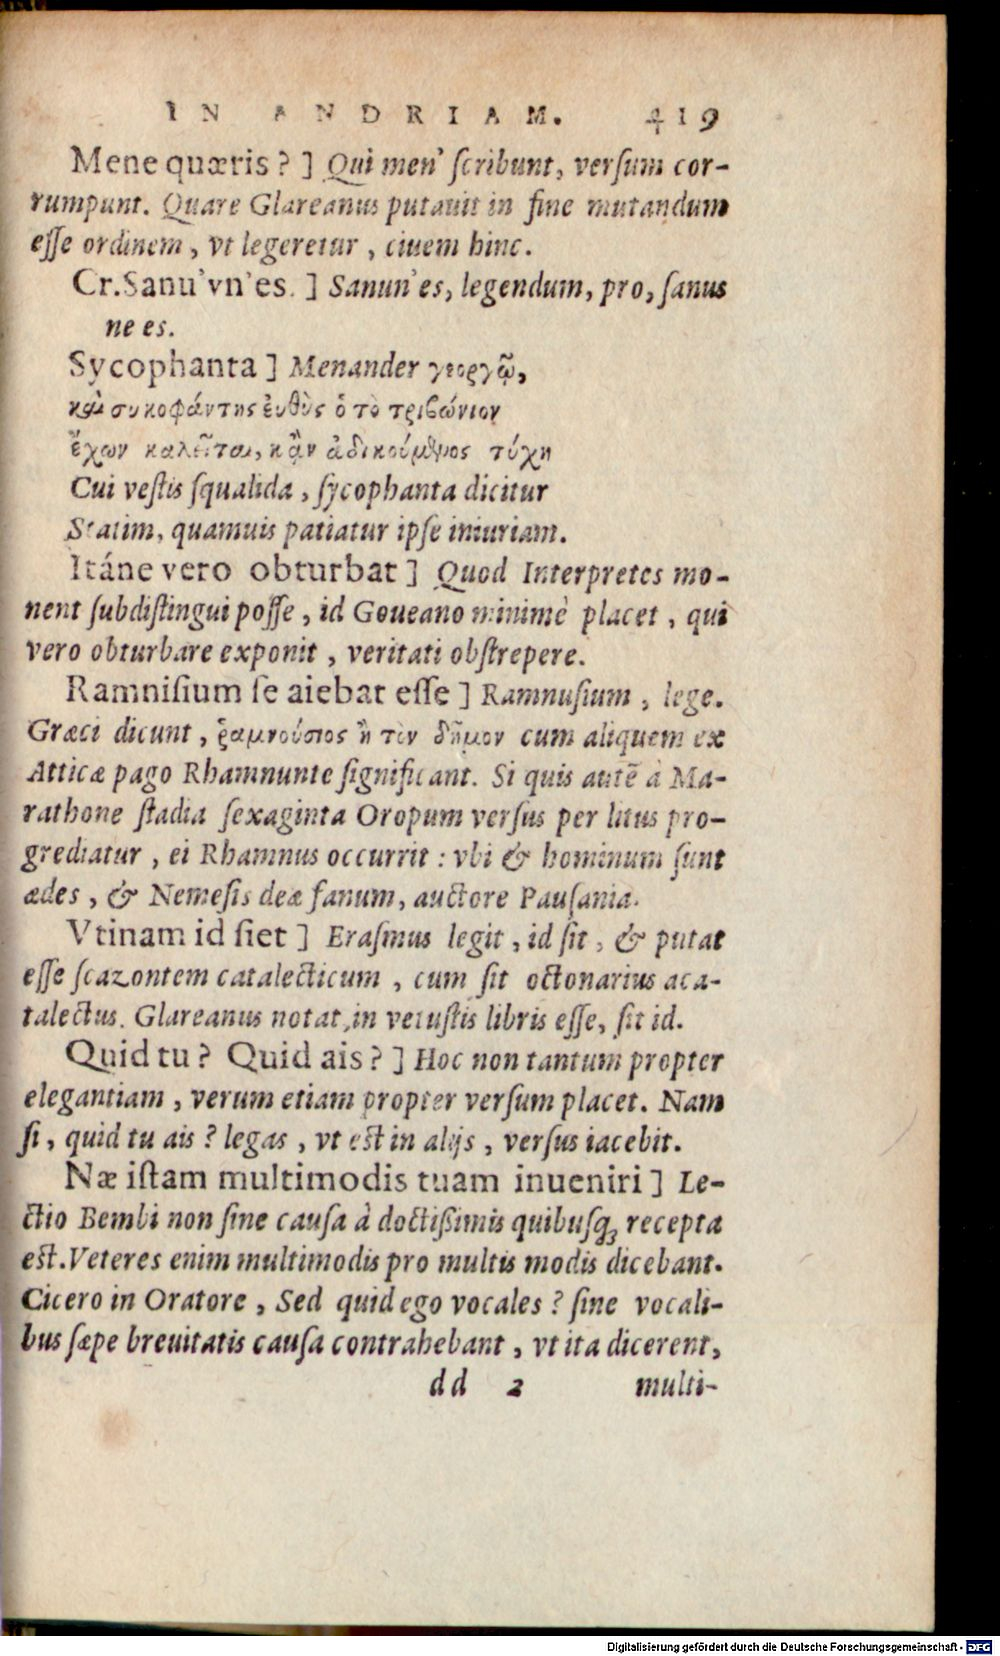 IN ANDRIAM. 419
Mene quæris? ] Qui men' ſcribunt, verſum cor-
rumpunt. Quare Glareanus putauit in fine mutandum
eſſe ordinem, vt legeretur, ciuem hinc.
Cr. Sanu'vn'es. ] Sanun'es, legendum, pro, ſanus
ne es.
Sycophanta ] Menander γεοργῷ,
καὶ συκοφάντης ἐυθὺς ὁ τὸ τριβώνιον
ἔχων καλεῖται, κᾂν ἀδικούμενος τύχῃ
Cui veſtis ſqualida, ſycophanta dicitur
Statim, quamuis patiatur ipſe iniuriam.
Itáne vero obturbat ] Quod Interpretes mo-
nent ſubdiſtingui poſſe, id Goueano minimè placet, qui
vero obturbare exponit, veritati obſtrepere.
Ramniſium ſe aiebat eſſe ] Ramnuſium, lege.
Græci dicunt, ῥαμνούσιος ἢ τὸν δῆμον cum aliquem ex
Atticæ pago Rhamnunte ſignificant. Si quis autē à Ma-
rathone ſtadia ſexaginta Oropum verſus per litus pro-
grediatur, ei Rhamnus occurrit: vbi & hominum ſunt
ædes, & Nemeſis deæ fanum, auctore Pauſania.
Vtinam id ſiet ] Eraſmus legit, id ſit, & putat
eſſe ſcazontem catalecticum, cum ſit octonarius aca-
talectus. Glareanus notat, in vetuſtis libris eſſe, ſit id.
Quid tu? Quid ais? ] Hoc non tantum propter
elegantiam, verum etiam propter verſum placet. Nam
ſi, quid tu ais? legas, vt eſt in alijs, verſus iacebit.
Næ iſtam multimodis tuam inueniri ] Le-
ctio Bembi non ſine cauſa à doctißimis quibuſq; recepta
eſt. Veteres enim multimodis pro multis modis dicebant.
Cicero in Oratore, Sed quid ego vocales? ſine vocali-
bus ſæpe breuitatis cauſa contrahebant, vt ita dicerent,
dd 2 multi-
Digitalisierung gefördert durch die Deutsche Forschungsgemeinschaft - DFG